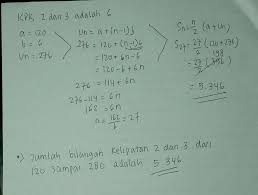 KPK 2 dan 3 adalah 6
a = 120
b = 6
Un = 276
Un = a + (n-1)b
276 = 120 + (n-1)6
= 120 + 6n - 6
= 120 - 6 + 6n
276 = 114 + 6n
276 - 114 = 6n
162 = 6n
n = 162/6 = 27
Sn = n/2 (a + Un)
S27 = 27/2 (120 + 276)
= 27/2 (396) 198
= 5.346
•) Jumlah bilangan kelipatan 2 dan 3 dari
120 sampai 280 adalah 5.346